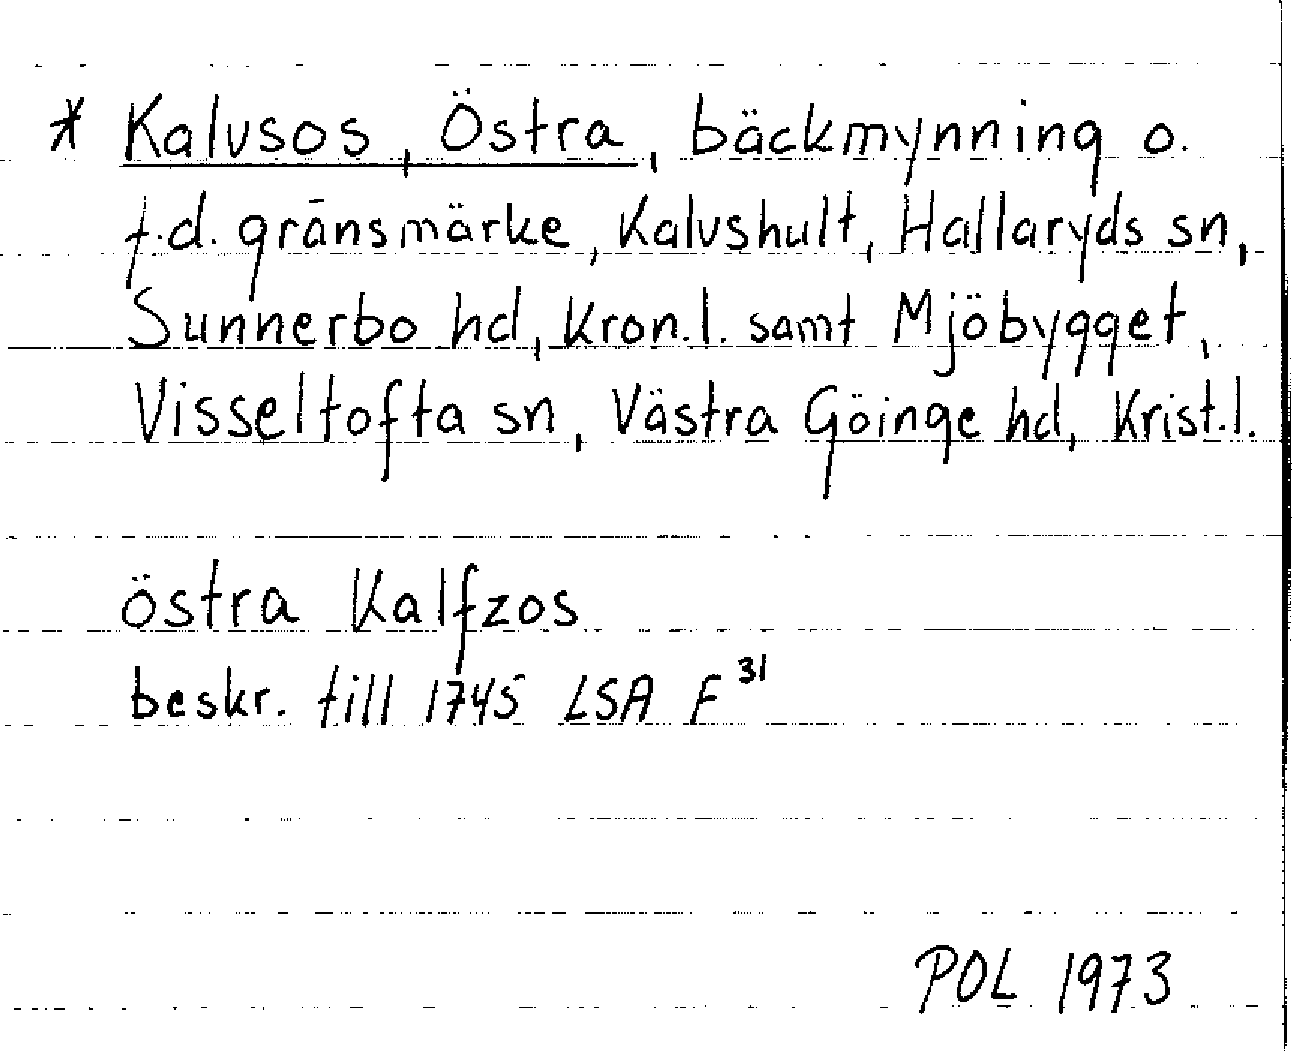 * Kalvsos, Östra, bäckmynning o.
f.d. gränsmärke, Kalvshult, Hallaryds sn,
Sunnerbo hd, Kron.l. samt Mjöbygget,
Visseltofta sn, Västra Göinge hd, Krist.l.
östra Kalfzos
beskr. till 1745 LSA F³¹
POL 1973